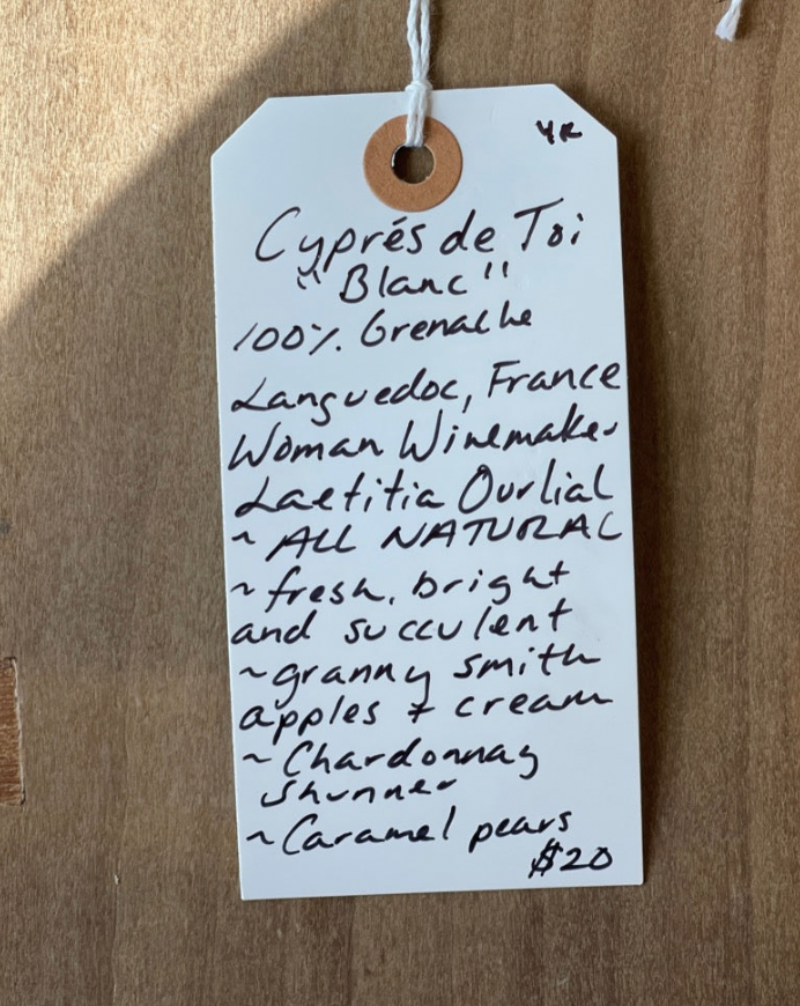 YR
Cyprés de Toi
"Blanc"
100% Grenache
Languedoc, France
Woman Winemaker
Laetitia Ourlial
~ ALL NATURAL
~ fresh, bright
and succulent
~ granny smith
apples + cream
~ Chardonnay
shunner
~ Caramel pears
$20